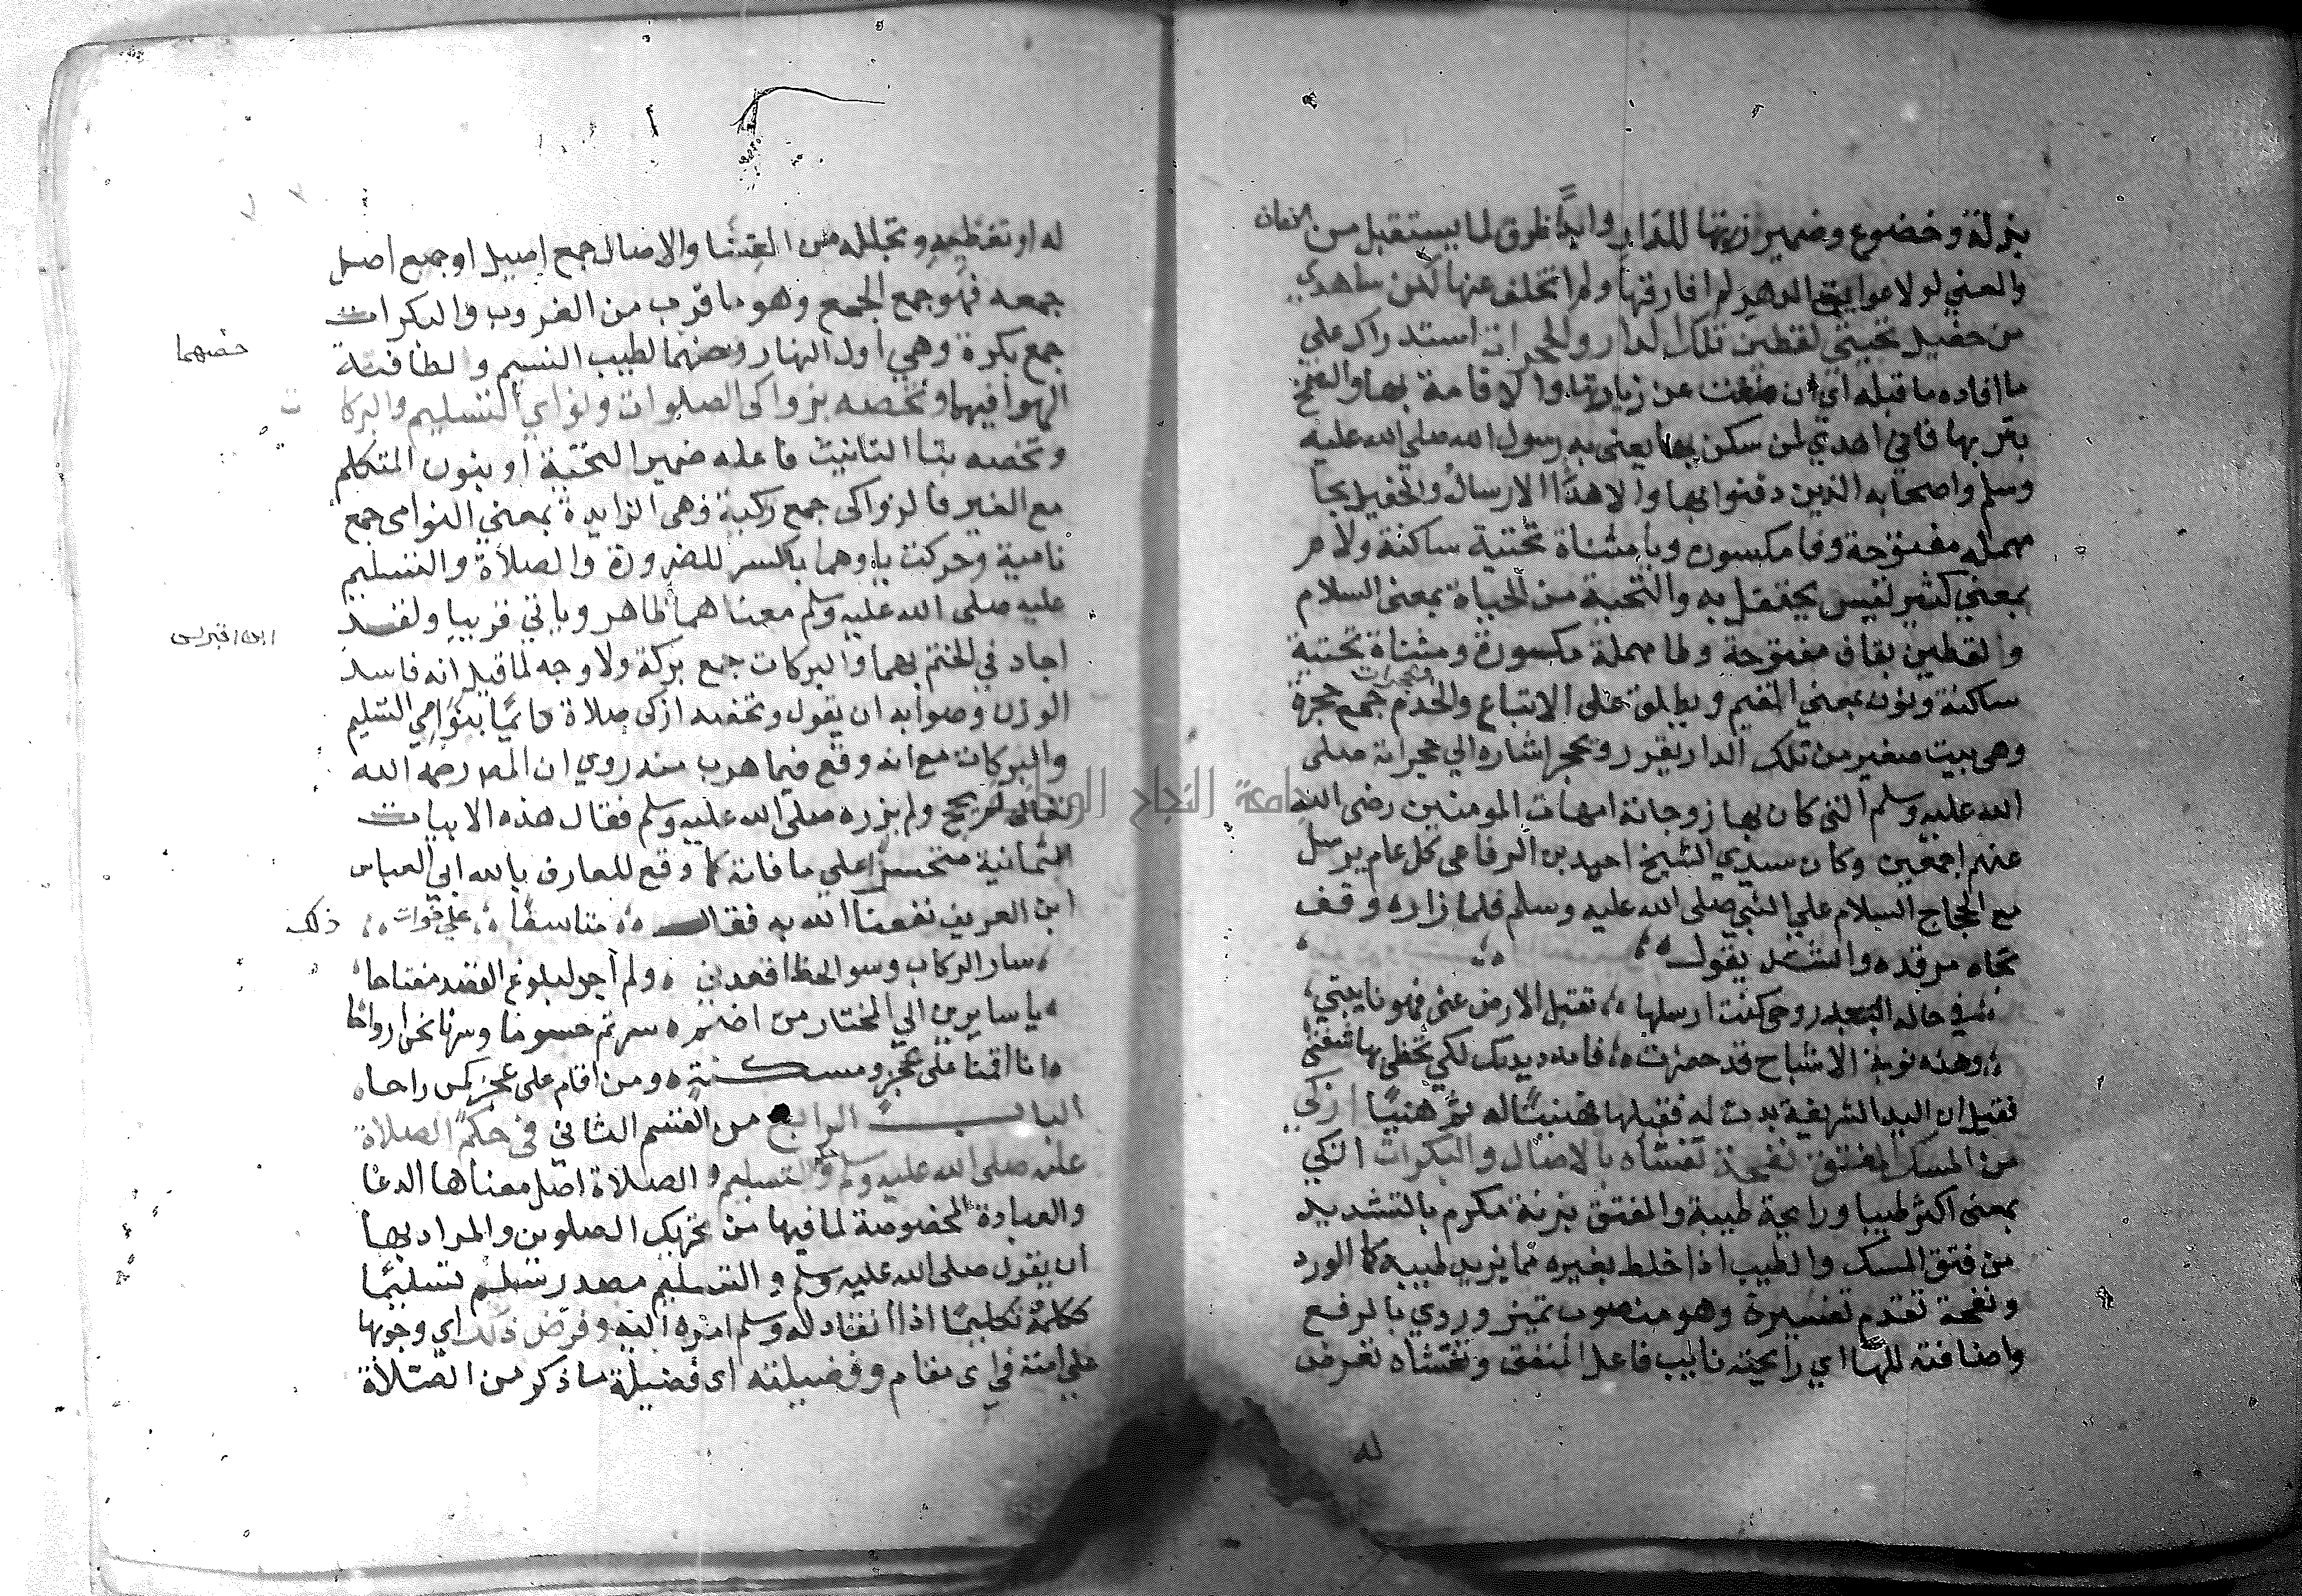 بذلة وخضوع وضمير زرتها للدار وابدًا ظرف لما يستقبل من الزمان
والمعني لولا عوايق الدهر لم افارقها ولم اتخلف عنها لكن ساهدي
من حفيل تحيتي لقطين تلك الدار والحجرات استدراك علي
ما افاده ما قبله اي ان منعت عن زيارتها والاقامة بها والتمتع
بتربها فاني اهدي لمن سكن بها يعني به رسول الله صلي الله عليه
وسلم واصحابه الذين دفنوا بها والاهدا الارسال والحفيل بحا
مهملة مفتوحة وفا مكسورة ويا مثناة تحتية ساكنة ولام
بمعني كثير نفيس يحتفل به والتحية من الحياة بمعني السلام
والقطين بقاف مفتوحة وطا مهملة مكسورة ومثناة تحتية
ساكنة ونون بمعني المقيم ويطلق علي الاتباع والخدم والحجرات جمع حجرة
وهي بيت صغير من تلك الدار يقرر ويحجر اشارة الي حجراته صلي
الله عليه وسلم التي كان بها زوجاته امهات المومنين رضي الله
عنهم اجمعين وكان سيدي الشيخ احمد بن الرفاعي كل عام يرسل
مع الحجاج السلام علي النبي صلي الله عليه وسلم فلما زاره وقف
تجاه مرقده وانشد يقول
في حالة البعد روحي كنت ارسلها تقبل الارض عني فهو نايبتي
وهذه نوبة الاشباح قد حضرت فامدد يديك لكي تحظي بها شفتي
فقيل ان اليد الشريفة بدت له فقبلها فهنيئًا له ثم هنيئًا ازكي
من المسك المفتق نفحة تغشاه بالاصال والبكرات ازكي
بمعني اكثر طيبا ورايحة طيبة والمفتق بزنة مكرم بالتشديد
من فتق المسك والطيب اذا خلط بغيره مما يزيد طيبه كما الورد
ونفحة تقدم تفسيره وهو منصوب تميز وروي بالرفع
واضافته للها اي رايحته نايب فاعل المفتق وتغشاه تعرض
له
له او تغطيه وتجلله من الغشا والاصال جمع اصيل او جمع اصل
جمعه فهو جمع الجمع وهو ما قرب من الغروب والبكرات
جمع بكرة وهي اول النهار وخصهما لطيب النسيم ولطافته
خصهما
الهوا فيهما وتخصه بزواكي الصلوات ونوامي التسليم والبركات
وتخصه بتا التانيث فاعله ضمير التحية او بنون المتكلم
مع الغير فالزواكي جمع زكية وهي الزايدة بمعني النوامي جمع
نامية وحركت ياوهما بالكسر للضرورة والصلاة والتسليم
عليه صلي الله عليه وسلم معناهما ظاهر وياتي قريبا ولقد
اجاد في الختم بهما والبركات جمع بركة ولا وجه لما قيل انه فاسد
الوزن وصوابه ان يقول وتخصه ازكي صلاة دايمًا بنوامي التسليم
والبركات مع انه وقع فيما هرب منه روي ان المص رحمه الله
تعالي لم يحج ولم يزره صلي الله عليه وسلم فقال هذه الابيات
الثمانية متحسرًا علي ما فاته كما وقع للعارف بالله ابي العباس
ابن العريف نفعنا الله به فقال متاسفًا علي فوات ذلك
سار الركاب وسو الحظ اقعدني ولم اجد لبلوغ القصد مفتاحا
يا سايرين الي المختار من مضر سرتم جسوما وسرنا نحن ارواحا
انا اقمنا علي عجز ومسكنة ومن اقام علي عجز كمن راحا
الباب الرابع من القسم الثاني في حكم الصلاة
عليه صلي الله عليه وسلم والتسليم والصلاة اصل معناها الدعا
والعبادة المخصوصة لما فيها من تحريك الصلوين والمراد بها
ان يقول صلي الله عليه وسلم والتسليم مصدر سلم تسليمًا
ككلمه تكليمًا اذا انقاد له وسلم امره اليه وفرض ذلك اي وجوبها
علي امته في اي مقام وفضيلته اي فضيلة ما ذكر من الصلاة